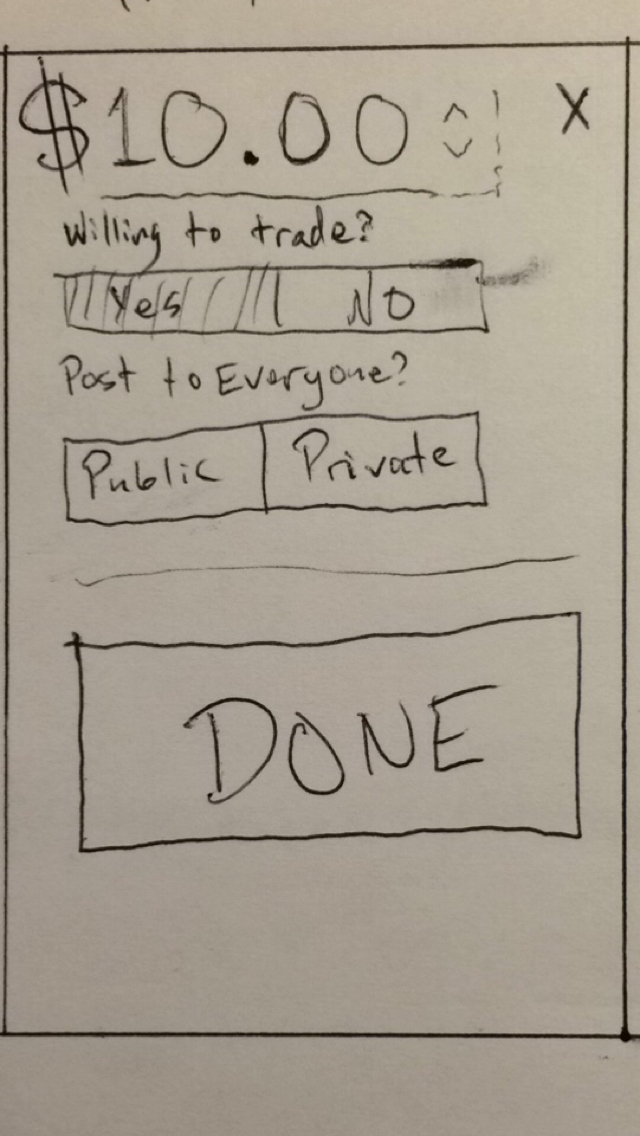 $10.00 X
Willing to trade?
Yes No
Post to Everyone?
Public Private
DONE